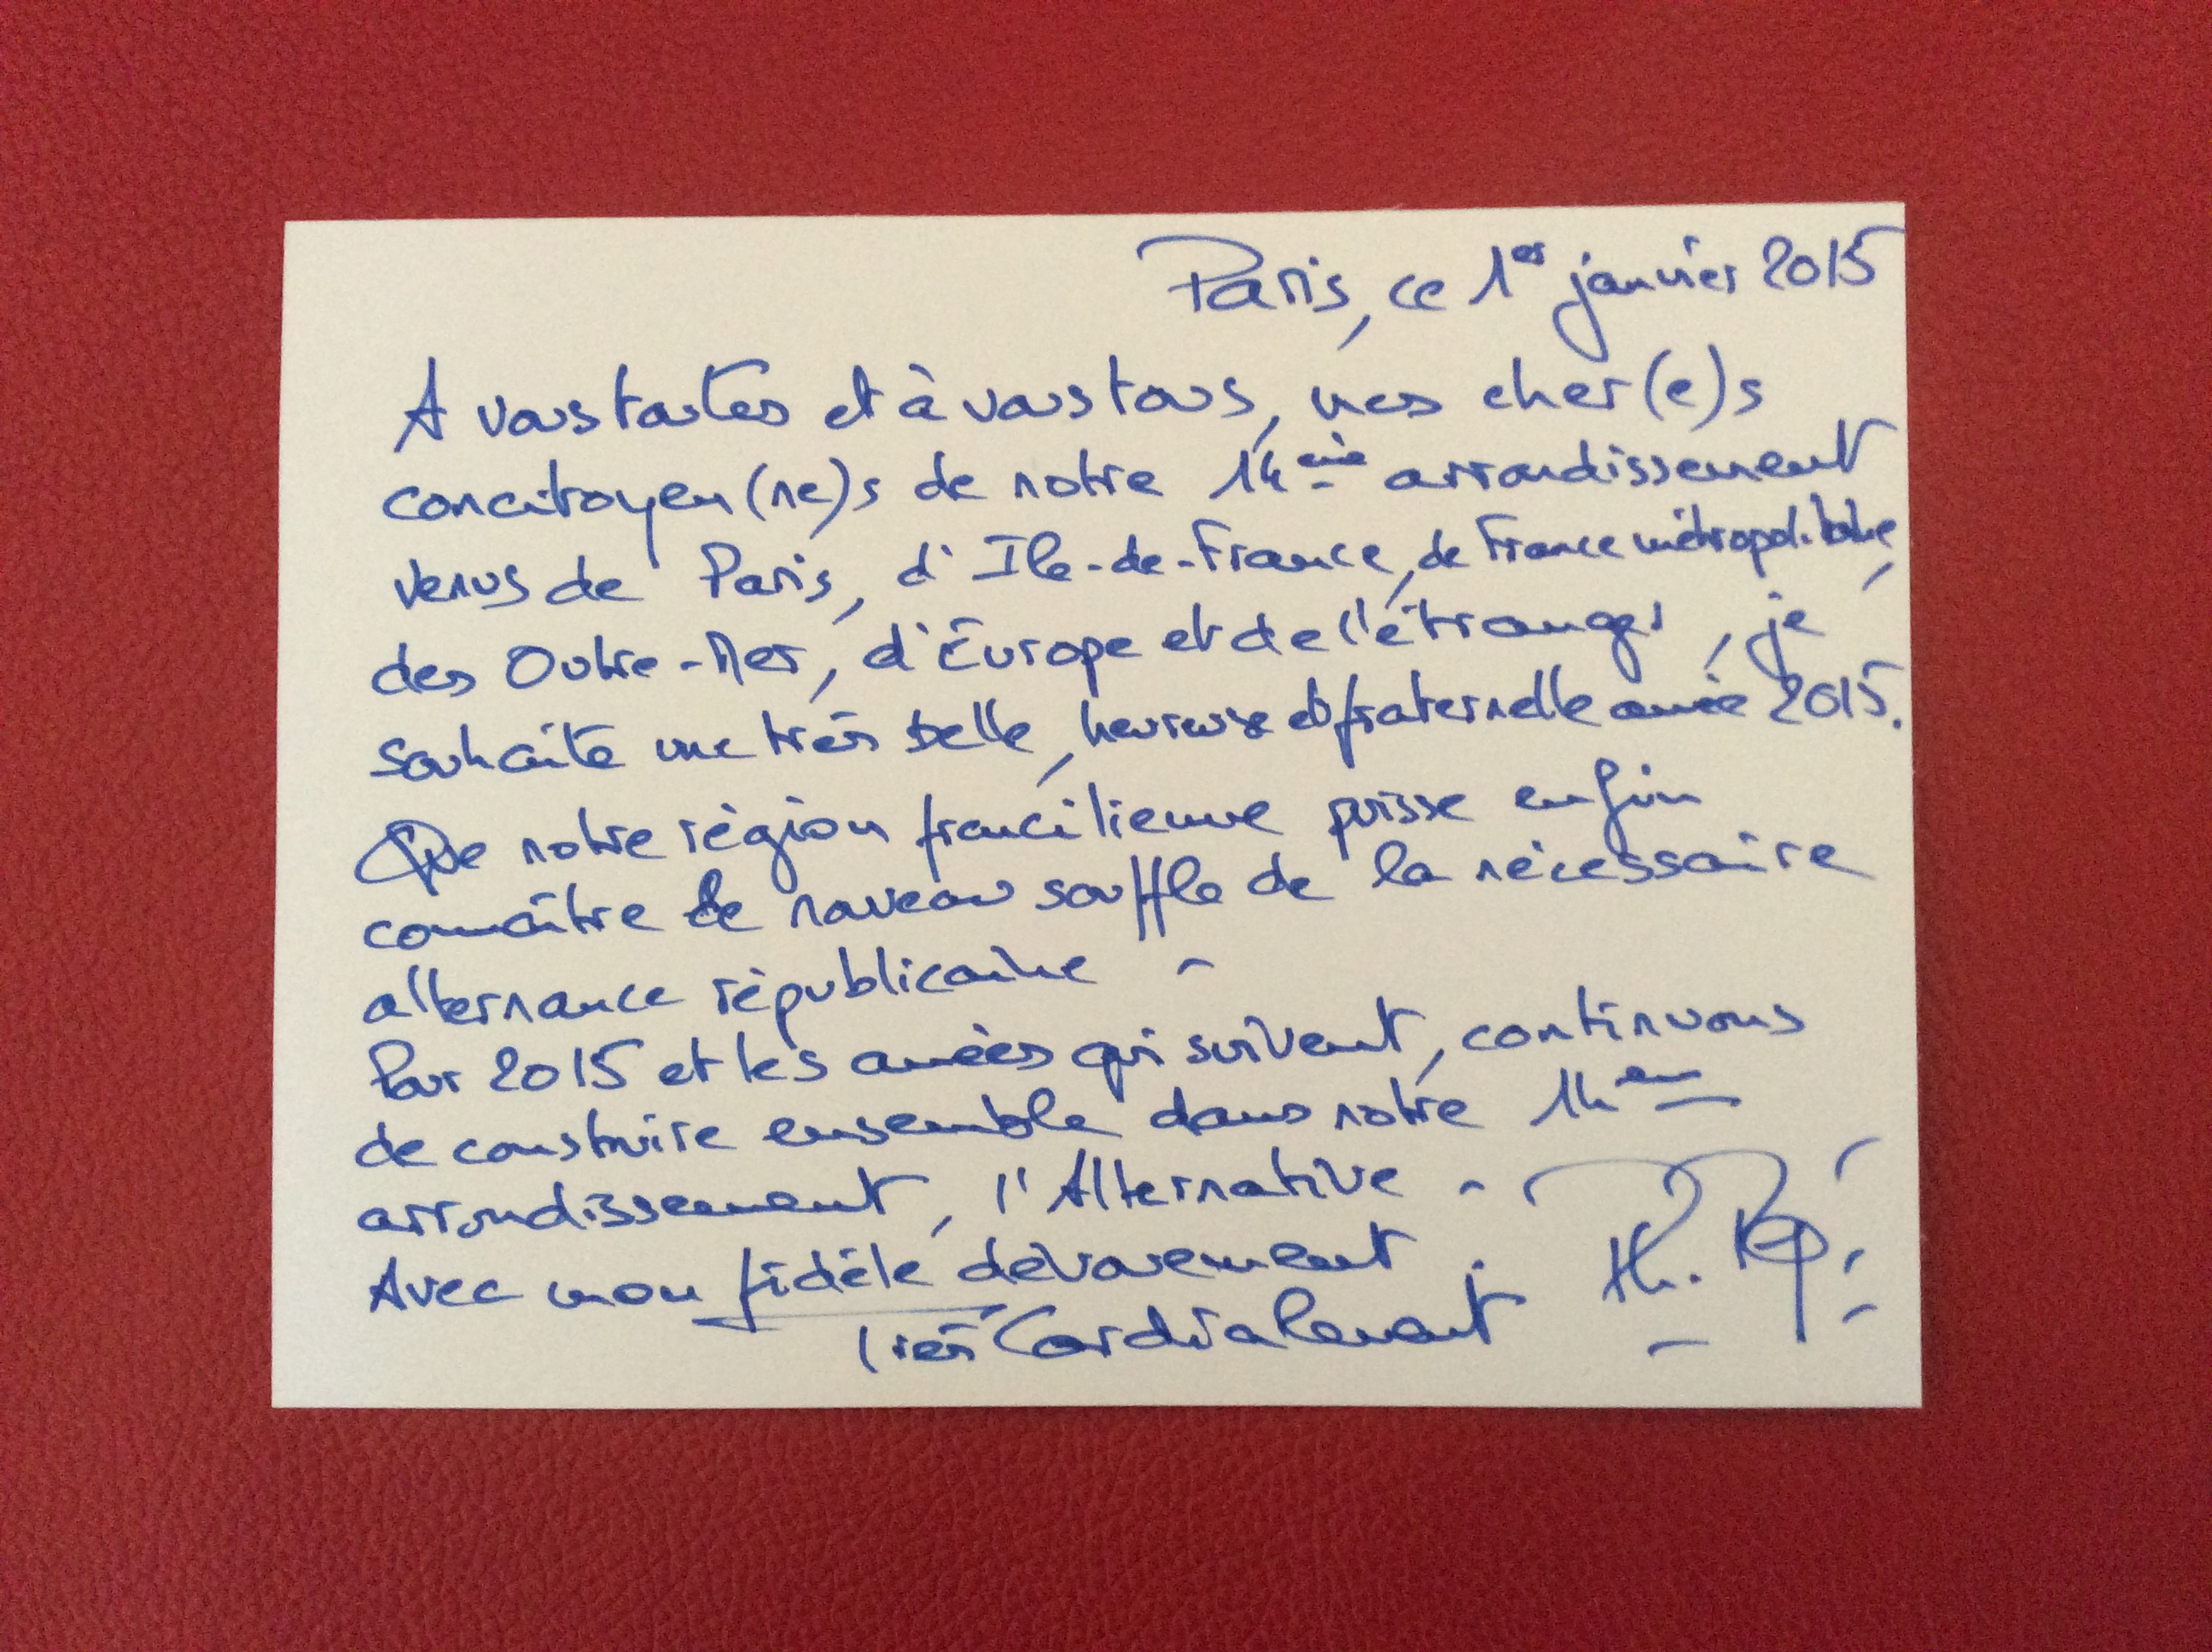 Paris, ce 1er janvier 2015
A vous toutes et à vous tous, mes cher(e)s
concitoyen(ne)s de notre 14ème arrondissement
venus de Paris, d'Ile-de-France, de France métropolitaine,
des Outre-Mer, d'Europe et de l'étranger, je
souhaite une très belle, heureuse et fraternelle année 2015.
Que notre région francilienne puisse enfin
connaître le nouveau souffle de la nécessaire
alternance républicaine -
Pour 2015 et les années qui suivent, continuons
de construire ensemble dans notre 14em
arrondissement, l'Alternative -
Avec mon fidèle dévouement.
Très Cordialement